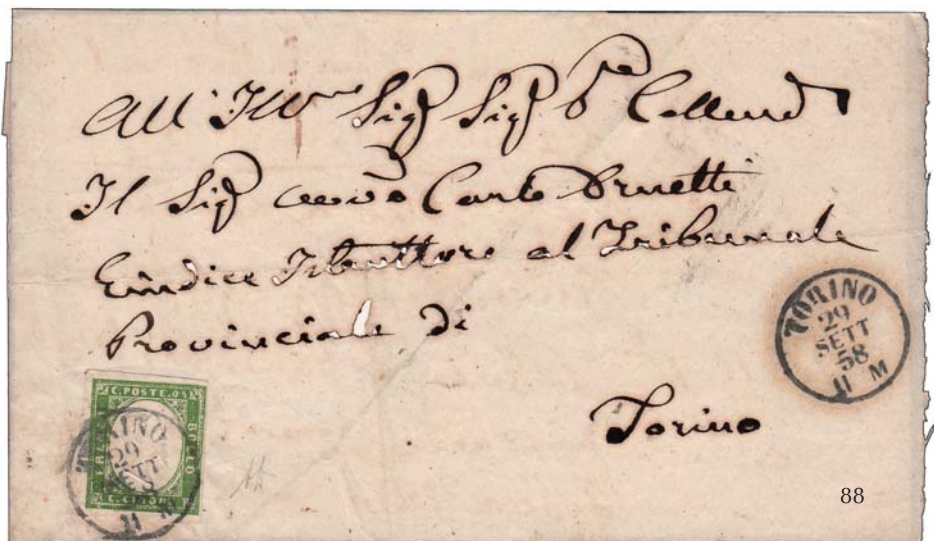 All' Ill.mo Sig Sig P.re Collend
Il Sig Carlo Brunetti
Giudice Istruttore al Tribunale
Provinciale di
Torino
TORINO
29
SETT
58
11 M
C. POSTE. 05
BOLLO
FRANCO
C. CINQUE
TORINO
29
SETT
11 M
88